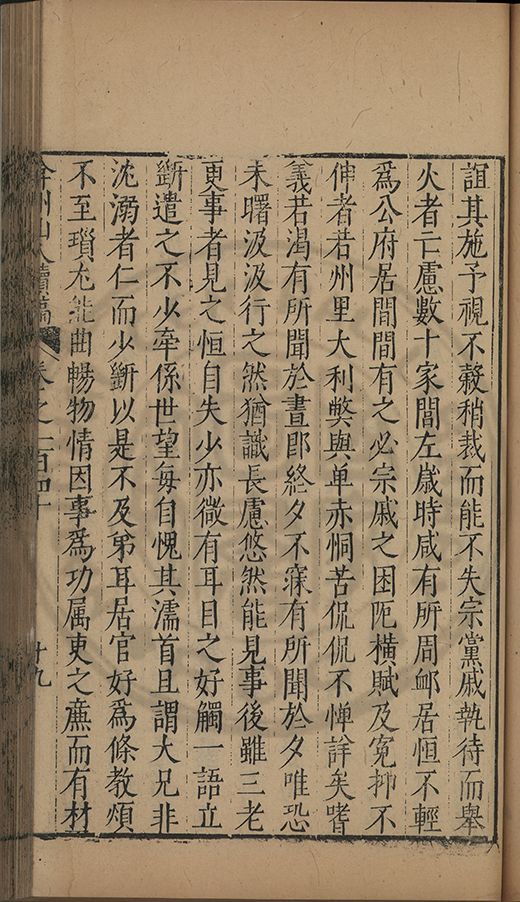 誼其施予視不敹稍裁而能不失宗黨戚執待而舉
火者亡慮數十家間左歲時咸有所周䘏居恒不輕
爲公府居間間有之必宗戚之困阨橫賦及寃抑不
伸者若州里大利獘與单赤恫苦侃侃不憚詳矣嗜
義若渴有所聞於晝即終夕不寐有所聞於夕唯恐
未曙汲汲行之然猶識長慮悠然能見事後雖三老
更事者見之恒自失少亦微有耳目之好觸一語立
斷遣之不少牽係世望每自愧其濡首且謂大兄非
沈溺者仁而少斷以是不及弟耳居官好爲條教煩
不至瑣尤能曲暢物情因事爲功属吏之㢘而有材
弇州山人續稿 卷之一百四十 廿九